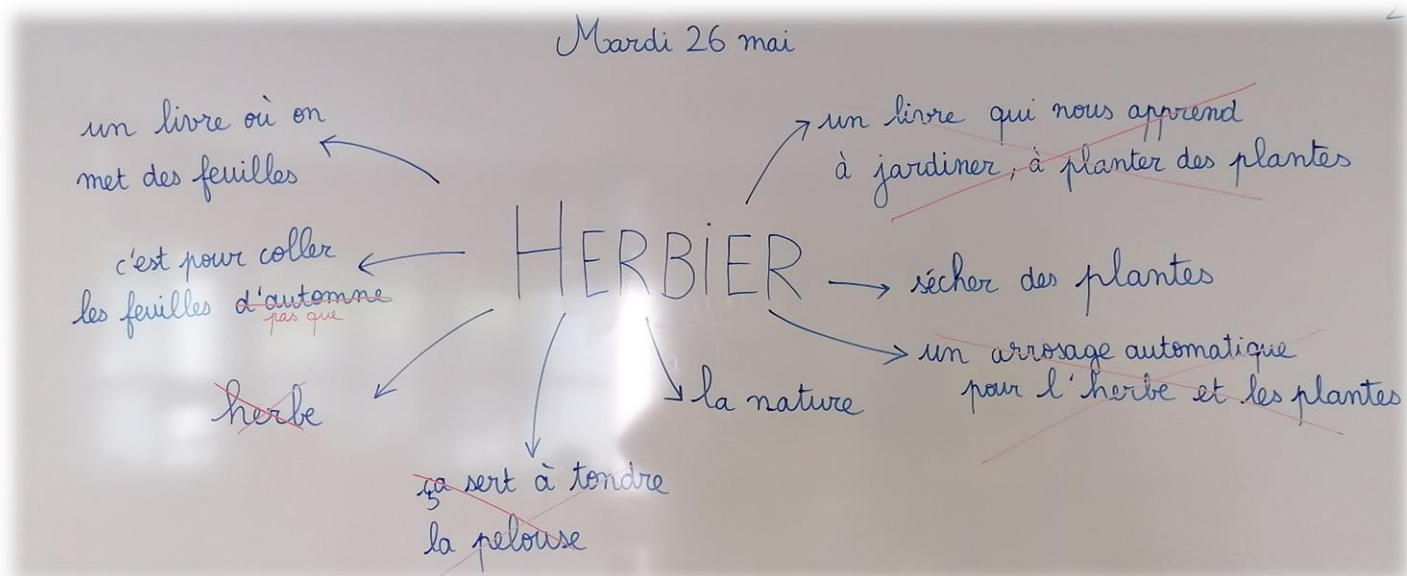 Mardi 26 mai
un livre où on
met des feuilles
c'est pour coller
les feuilles d'automne
pas que
herbe
ça sert à tondre
la pelouse
HERBiER
la nature
un livre qui nous apprend
à jardiner, à planter des plantes
sécher des plantes
un arrosage automatique
pour l'herbe et les plantes